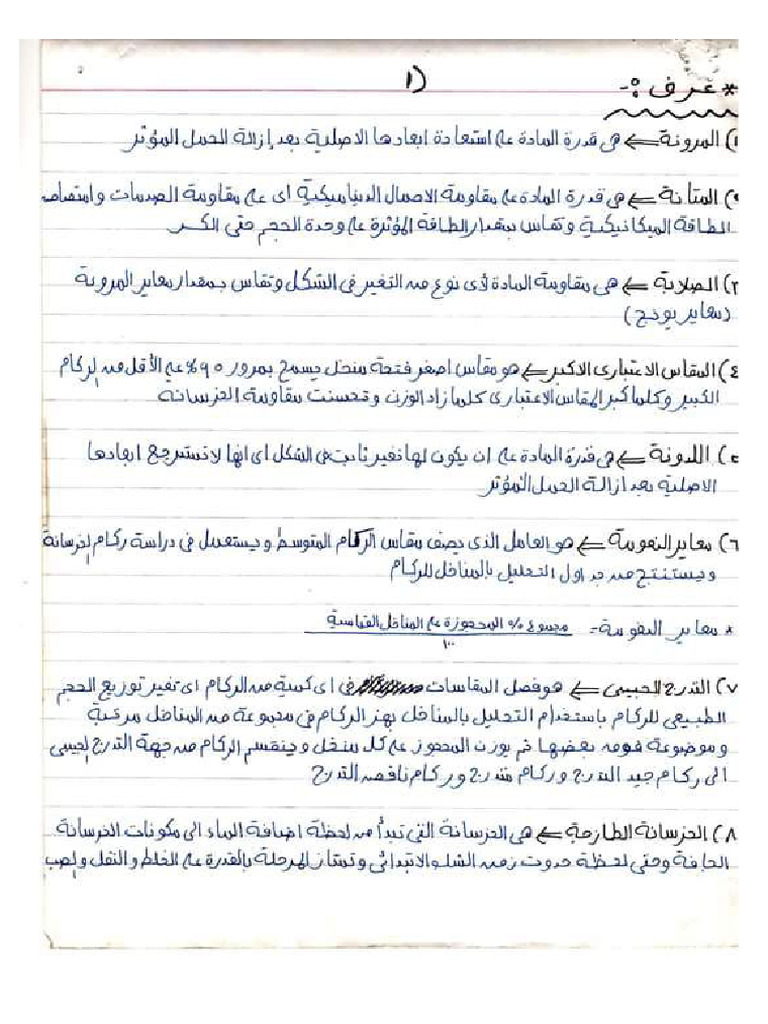 ١)
* عرف :-
١) المرونة ⇐ هى قدرة المادة على استعادة ابعادها الاصلية بعد إزالة الحمل المؤثر
٢) المتانة ⇐ هى قدرة المادة على مقاومة الاحمال الديناميكية اى على مقاومة الصدمات وامتصاص
الطاقة الميكانيكية وتقاس بمقدار الطاقة المؤثرة على وحدة الحجم حتى الكسر
٣) الصلابة ⇐ هى مقاومة المادة لأى نوع من التغير فى الشكل وتقاس بمقدار معاير المرونة
(معاير يونج)
٤) المقاس الاعتبارى الاكبر ⇐ هو مقاس اصغر فتحة منخل يسمح بمرور ٩٥ % على الأقل من الركام
الكبير وكلما كبر المقاس الاعتبارى كلما زاد الوزن وتحسنت مقاومة الخرسانة
٥) اللدونة ⇐ هى قدرة المادة على ان يكون لها تغير ثابت فى الشكل اى انها لا تسترجع ابعادها
الاصلية بعد ازالة الحمل المؤثر
٦) معاير النعومة ⇐ هو العامل الذى يصف مقاس الركام المتوسط ويستعمل فى دراسة ركام الخرسانة
ويستنتج من جداول التحليل بالمناخل للركام
* معاير النعومة = مجموع % المحجوزة على المناخل القياسية
١٠٠
٧) التدرج الحبيبى ⇐ هو فصل المقاسات فى اى كمية من الركام اى تغير توزيع الحجم
الطبيعى للركام باستخدام التحليل بالمناخل بهز الركام فى مجموعة من المناخل مرتبة
وموضوعة فوق بعضها ثم يوزن المحجوز على كل منخل وينقسم الركام من جهة التدرج الحبيبى
الى ركام جيد التدرج وركام متدرج وركام ناقص التدرج
٨) الخرسانة الطازجة ⇐ هى الخرسانة التى تبدأ من لحظة اضافة الماء الى مكونات الخرسانة
الجافة وحتى لحظة حدوث زمن الشك الابتدائى وتمتاز المرحلة بالقدرة على الخلط والنقل والصب